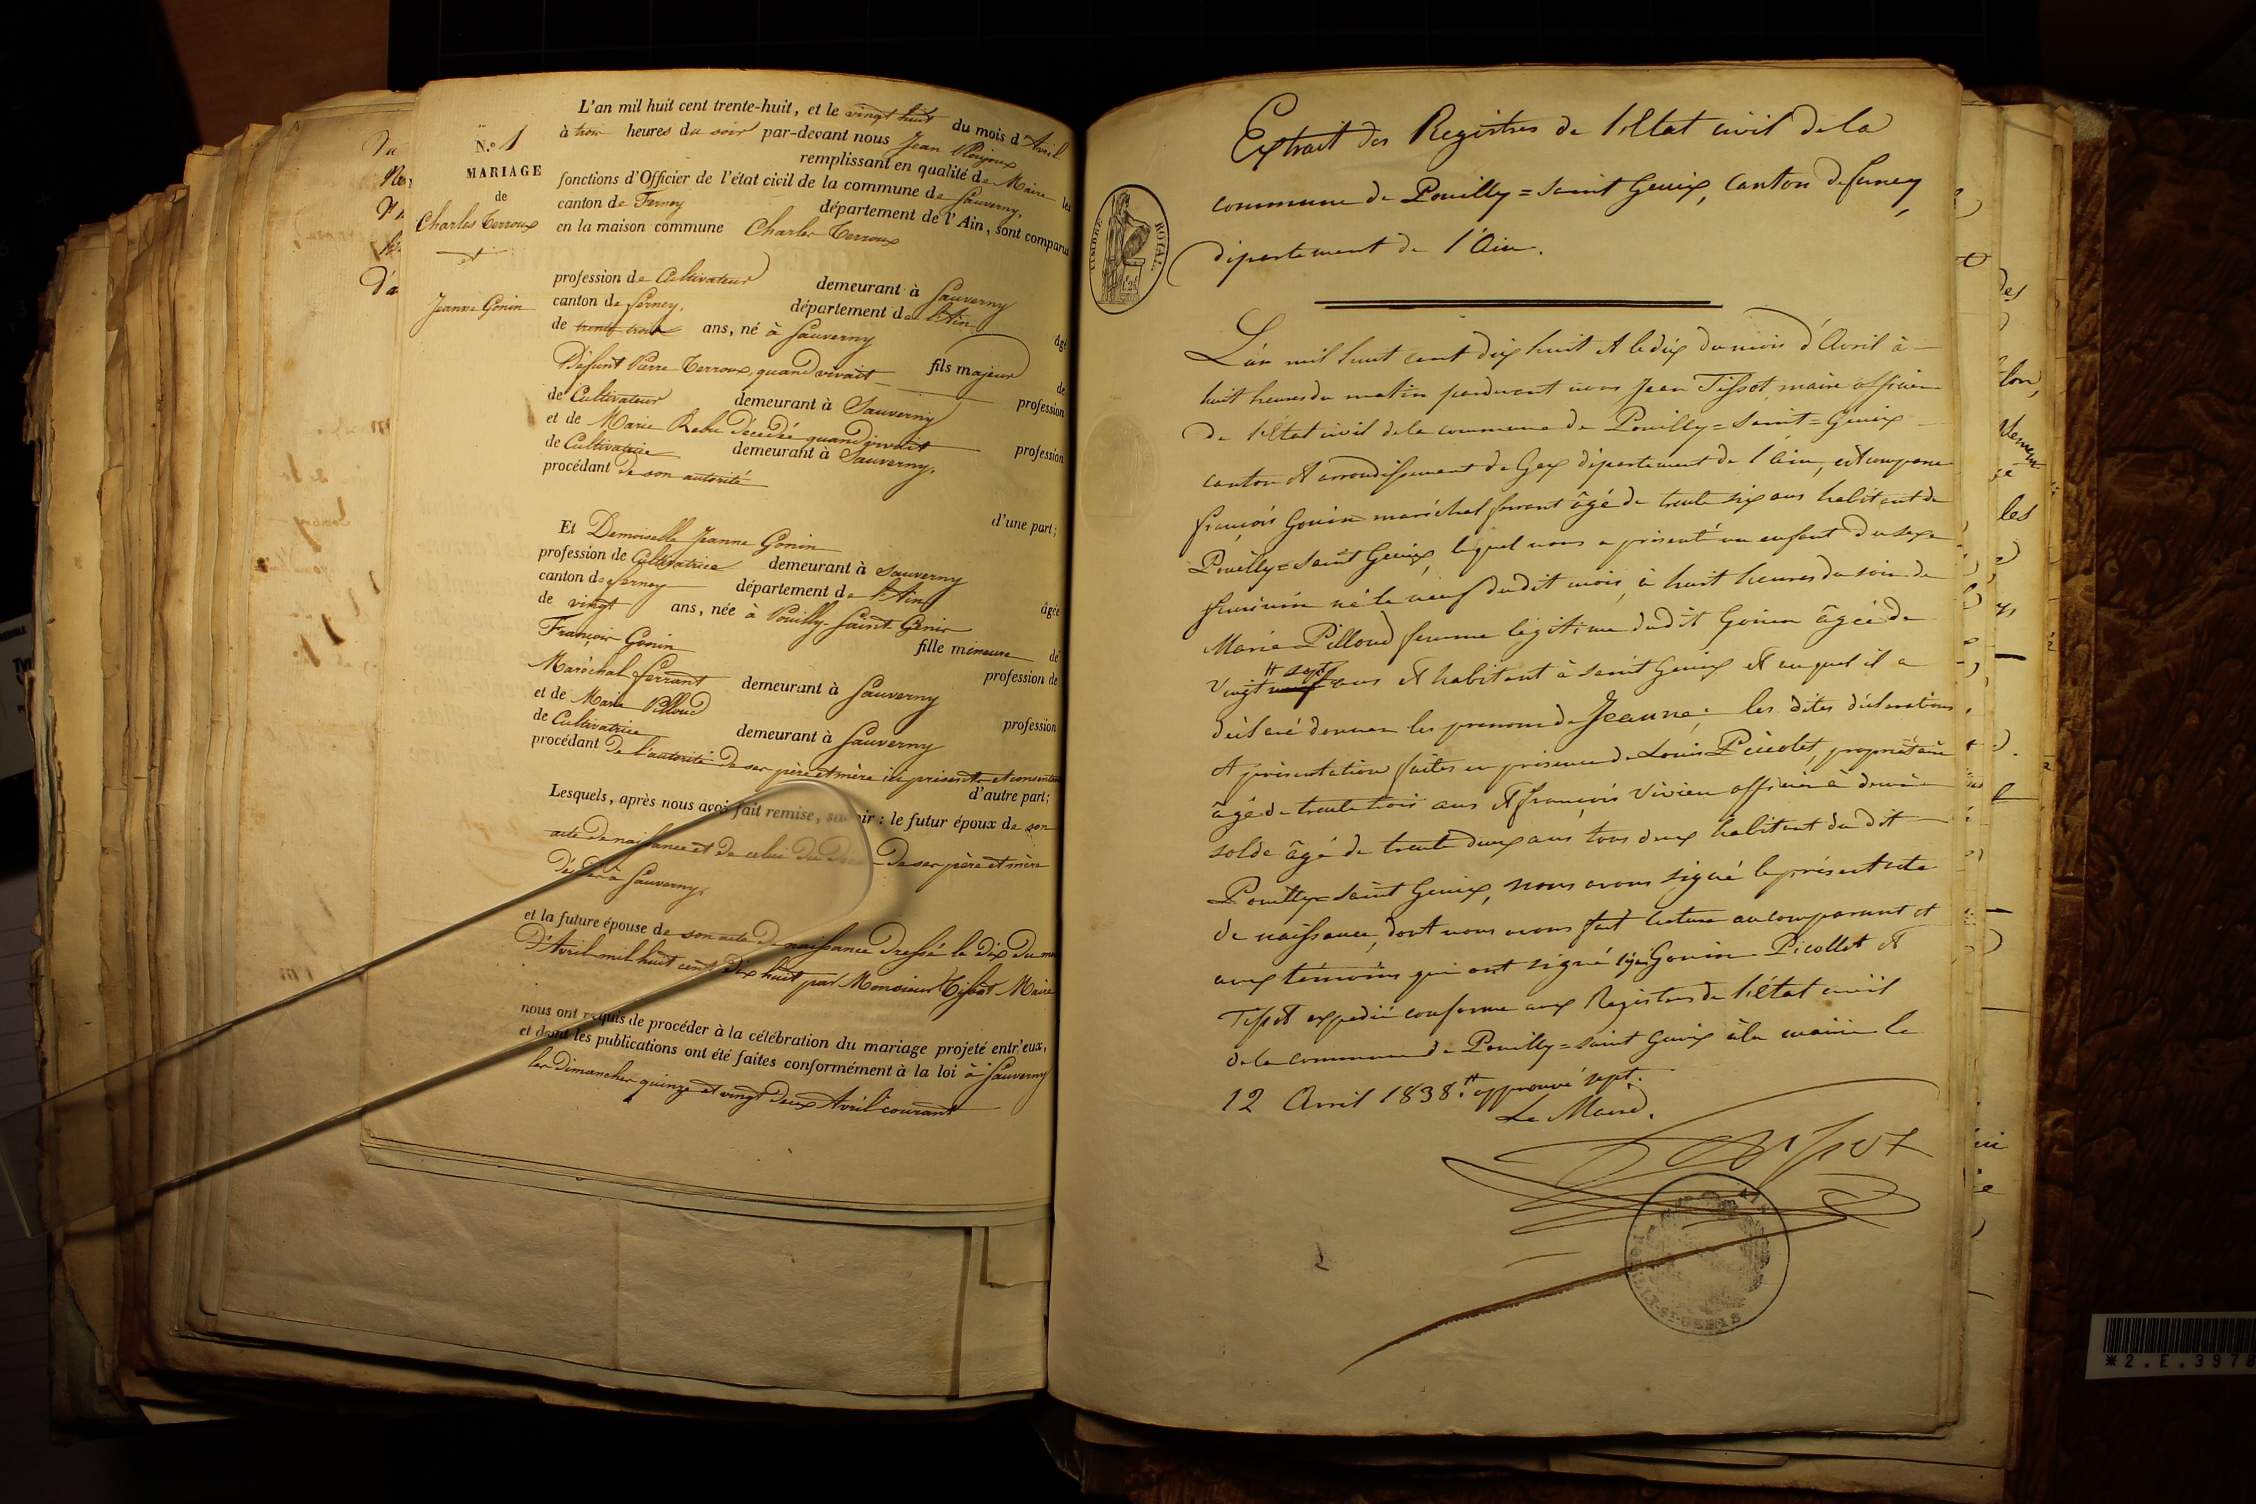 N.º 1
MARIAGE
de
Charles Terroux
et
Jeanne Gonin
L'an mil huit cent trente-huit, et le vingt huit du mois d'Avril
à trois heures du soir par-devant nous Jean
remplissant en qualité de Maire les
fonctions d'Officier de l'état civil de la commune de Sauverny,
canton de Ferney département de l'Ain, sont comparus
en la maison commune Charles Terroux
profession de Cultivateur demeurant à Sauverny
canton de ferney, département de l'Ain âgé
de trente trois ans, né à Sauverny
fils majeur de
Défunt Pierre Terroux, quand vivait profession
de Cultivateur demeurant à Sauverny
et de Marie Rebu décédée quand vivait profession
de Cultivatrice demeurant à Sauverny,
procédant de son autorité
d'une part;
Et Demoiselle Jeanne Gonin
profession de Cultivatrice demeurant à Sauverny
canton de ferney département de l'Ain âgée
de vingt ans, née à Pouilly-Saint-Genix
fille mineure de
François Gonin profession de
Maréchal ferrant demeurant à Sauverny
et de Marie Pilloud profession
de Cultivatrice demeurant à Sauverny
procédant de l'autorité de ses père et mère ici présents et consentans
d'autre part;
Lesquels, après nous avoir fait remise, savoir : le futur époux de son
acte de naissance et de celui du décès de ses père et mère
décédés à Sauverny,
et la future épouse de son acte de naissance dressé le dix du mois
D'Avril mil huit cent dix huit par Monsieur Tissot Maire
nous ont requis de procéder à la célébration du mariage projeté entr'eux,
et dont les publications ont été faites conformément à la loi à Sauverny
les Dimanches quinze et vingt deux Avril courant
Extrait des Registres de l'Etat civil de la
commune de Pouilly=saint Genix, canton de ferney,
département de l'Ain.
TIMBRE ROYAL
L'an mil huit cent dix huit et le dix du mois d'Avril à
huit heures du matin pardevant nous Jean Tissot, maire officier
de l'Etat civil de la commune de Pouilly=Saint=Genix
canton et arrondissement de Gex département de l'ain, est comparu
françois Gonin maréchal ferrant âgé de trente six ans habitant de
Pouilly=saint Genix, lequel nous a présenté un enfant du sexe
féminin né le neuf du dit mois, à huit heures du soir de
Marie Pilloud femme légitime du dit Gonin âgée de
sept
Vingt neuf ans et habitant à saint Genix et auquel il a
déclaré donner les prenoms de Jeanne; les dites déclarations
et présentation faites en présence de Louis Picolet, propriétaire
âgé de trente trois ans et françois Vivien officier à demie
solde âgé de trente deux ans tous deux habitant du dit
Pouilly=saint Genix, nous avons signé le présent acte
de naissance, dont nous avons fait lecture au comparant et
aux témoins qui ont signé Gonin Picollet et
Tissot expédié conforme aux Registres de l'état civil
de la commune de Pouilly=saint Genix à la mairie le
12 Avril 1838. approuvé sept.
Le Maire.
POUILLY-ST-GENIS
*2.E.3978